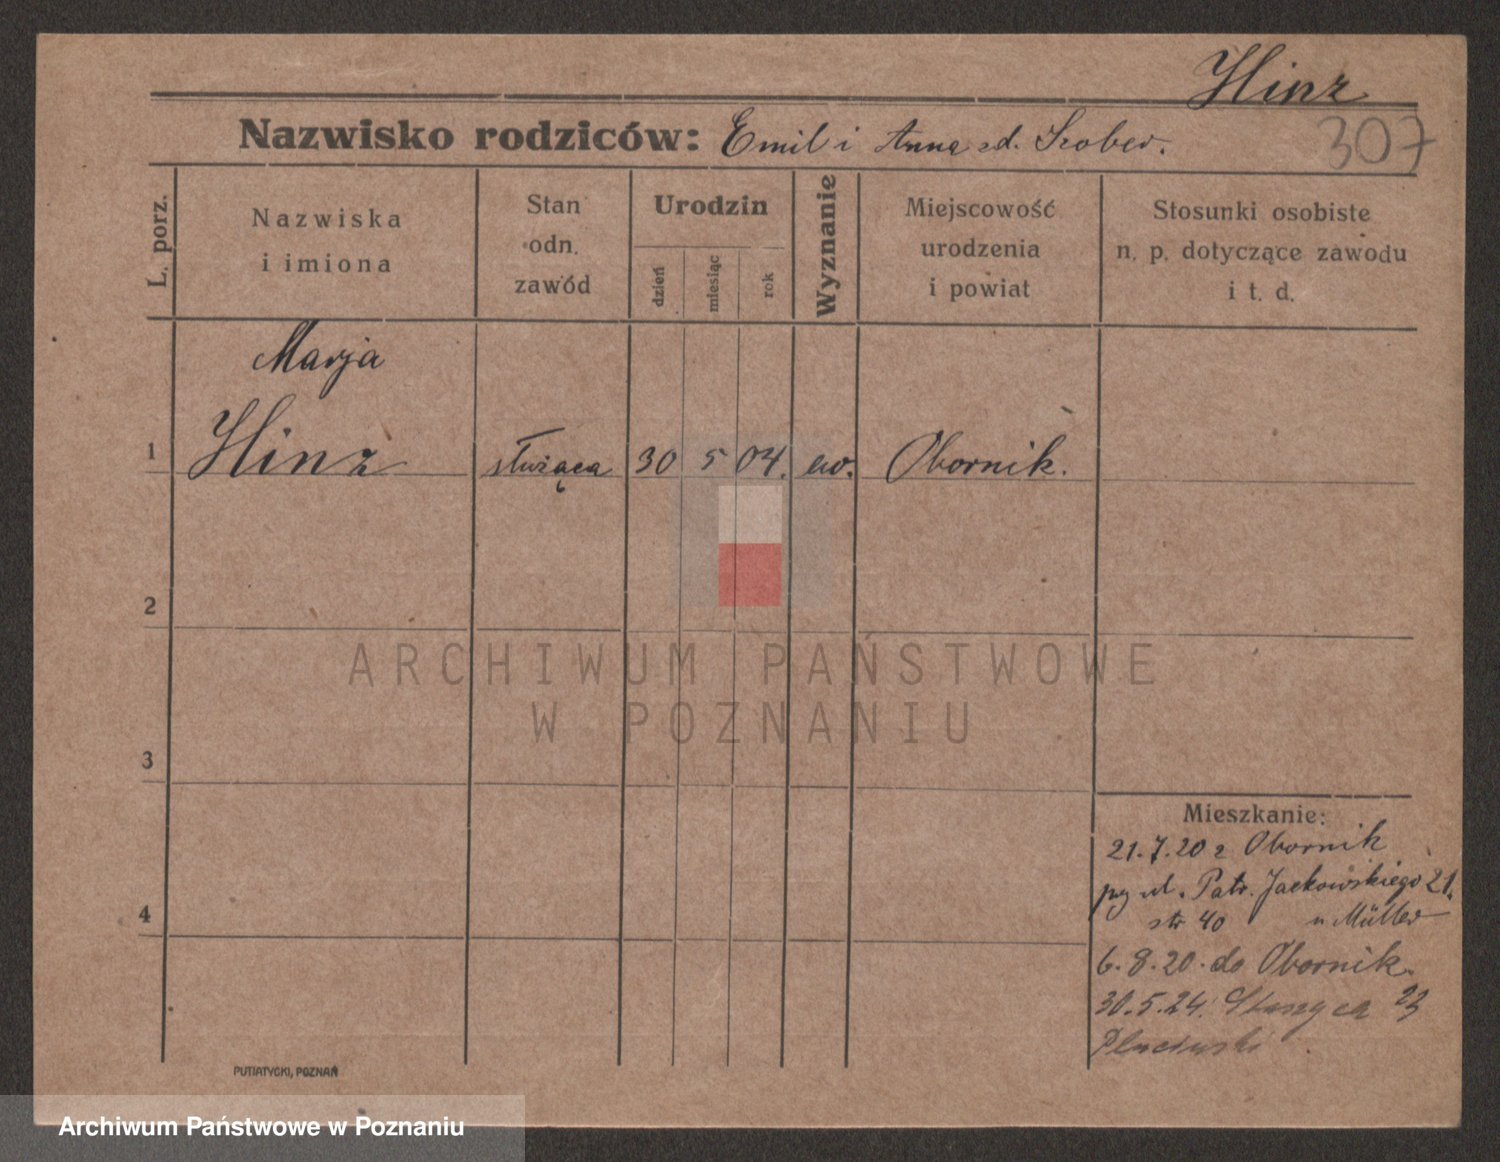 Hinz
Nazwisko rodziców: Emil i Anna zd. Szober.
307
L. porz.
Nazwiska
i imiona
Stan
odn.
zawód
Urodzin
dzień
miesiąc
rok
Wyznanie
Miejscowość
urodzenia
i powiat
Stosunki osobiste
n. p. dotyczące zawodu
i t. d.
Marja
1 Hinz służąca 30 5 04. ew. Obornik.
2
3
4
Mieszkanie:
21.7.20 z Obornik
ul. Patr. Jackowskiego 21.
str 40 u Müller
6.8.20. do Obornik.
30.5.24. Staszyca 23
PUTIATYCKI, POZNAŃ
ARCHIWUM PAŃSTWOWE
W POZNANIU
Archiwum Państwowe w Poznaniu